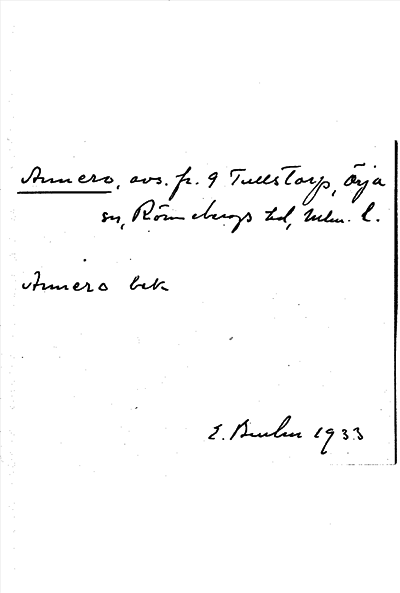 Annero, avs. fr. 9 Tullstorp, Örja
sn, Rönnebergs hd, Mlm. l.
Annero bek
E. 1933